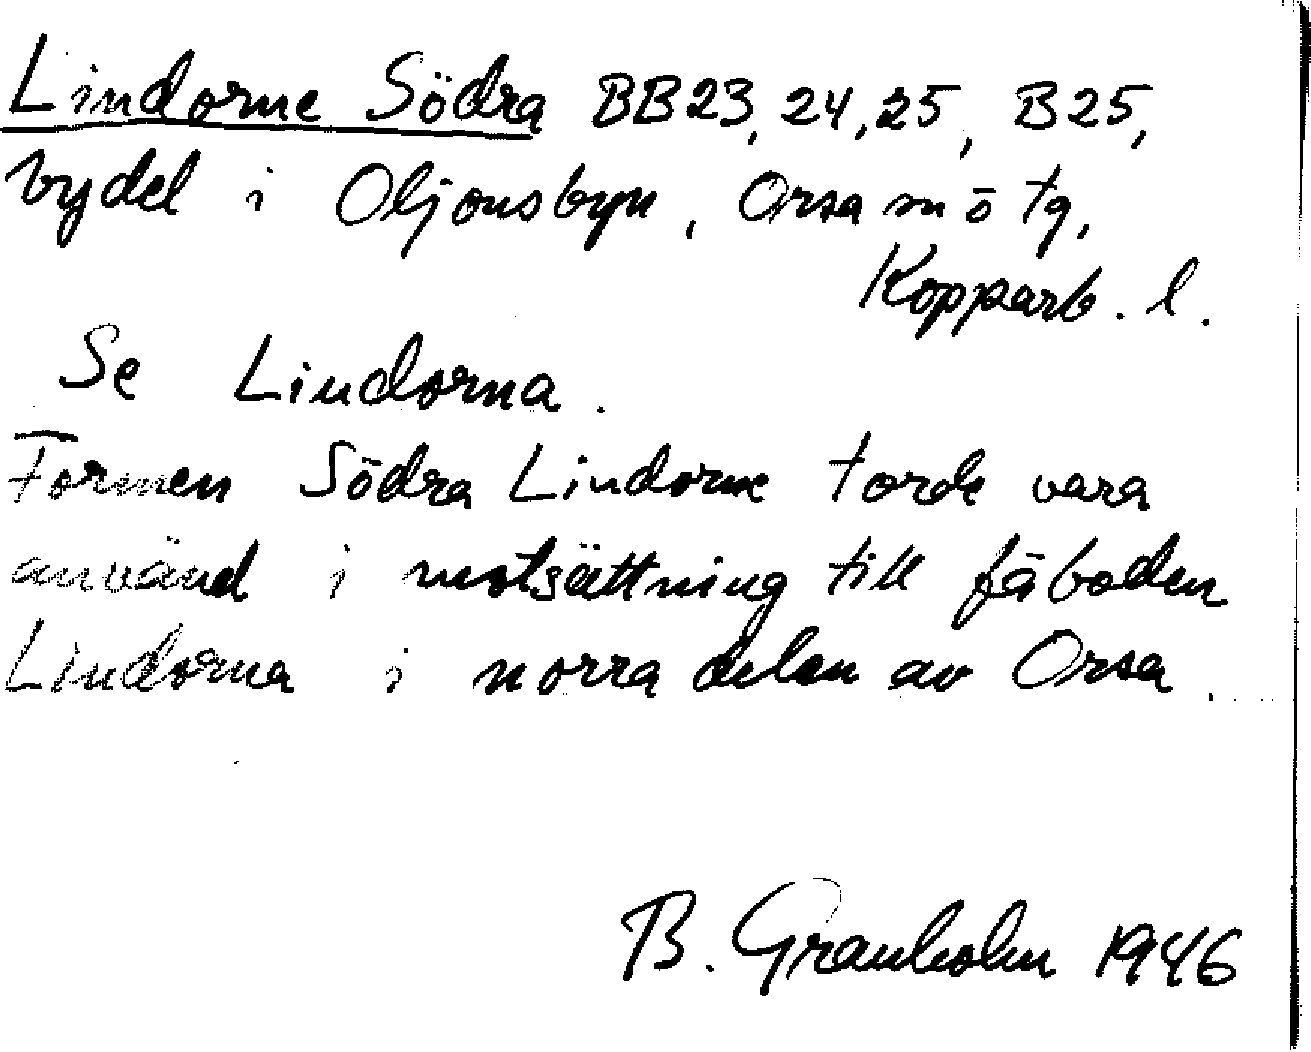 Lindorne Södra BB23, 24, 25, B25,
bydel i Oljonsbyn, Orsa sn o tg,
Kopparb. l.
Se Lindorna.
Formen Södra Lindorne torde vara
använd i motsättning till fäboden
Lindorna i norra delen av Orsa.
B. Granholm 1946